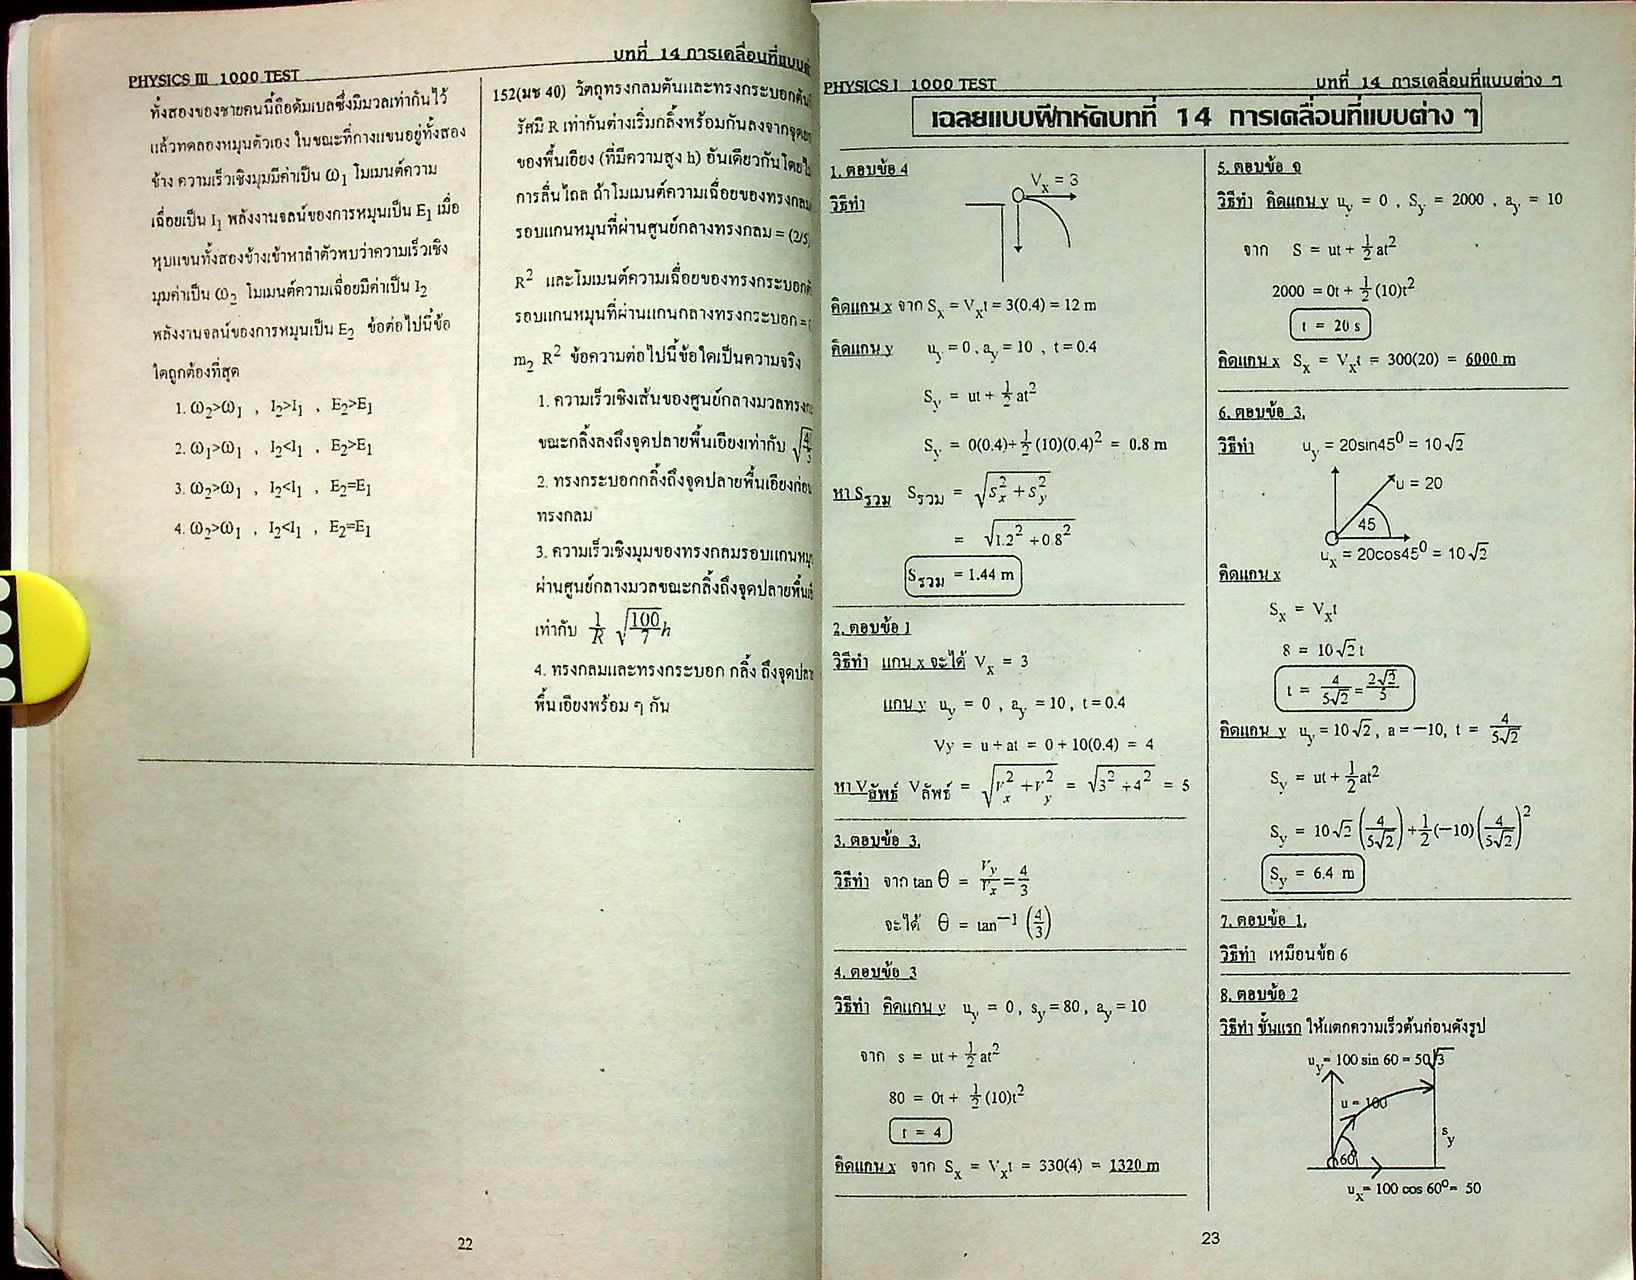 PHYSICS III 1000 TEST
บทที่ 14 การเคลื่อนที่แบบ
ทั้งสองของชายคนนี้ถือดัมเบลซึ่งมีมวลเท่ากันไว้
แล้วทดลองหมุนตัวเอง ในขณะที่กางแขนอยู่ทั้งสอง
ข้าง ความเร็วเชิงมุมมีค่าเป็น ω₁ โมเมนต์ความ
เฉื่อยเป็น I₁ พลังงานจลน์ของการหมุนเป็น E₁ เมื่อ
หุบแขนทั้งสองข้างเข้าหาลำตัวพบว่าความเร็วเชิง
มุมค่าเป็น ω₂ โมเมนต์ความเฉื่อยมีค่าเป็น I₂
พลังงานจลน์ของการหมุนเป็น E₂ ข้อต่อไปนี้ข้อ
ใดถูกต้องที่สุด
1. ω₂>ω₁ , I₂>I₁ , E₂>E₁
2. ω₁>ω₁ , I₂<I₁ , E₂>E₁
3. ω₂>ω₁ , I₂<I₁ , E₂=E₁
4. ω₂>ω₁ , I₂<I₁ , E₂=E₁
152(มช 40) วัตถุทรงกลมตันและทรงกระบอกตัน
รัศมี R เท่ากันต่างเริ่มกลิ้งพร้อมกันลงจากจุด
ของพื้นเอียง (ที่มีความสูง h) อันเดียวกันโดย
การลื่นไถล ถ้าโมเมนต์ความเฉื่อยของทรงกลม
รอบแกนหมุนที่ผ่านศูนย์กลางทรงกลม = (2/5)
R² และโมเมนต์ความเฉื่อยของทรงกระบอก
รอบแกนหมุนที่ผ่านแกนกลางทรงกระบอก =
m₂ R² ข้อความต่อไปนี้ข้อใดเป็นความจริง
1. ความเร็วเชิงเส้นของศูนย์กลางมวล
ขณะกลิ้งลงถึงจุดปลายพื้นเอียงเท่ากับ √4/3
2. ทรงกระบอกกลิ้งถึงจุดปลายพื้นเอียงก่อน
ทรงกลม
3. ความเร็วเชิงมุมของทรงกลมรอบแกน
ผ่านศูนย์กลางมวลขณะกลิ้งถึงจุดปลาย
เท่ากับ 1/R √(100/7)h
4. ทรงกลมและทรงกระบอก กลิ้ง ถึงจุด
พื้นเอียงพร้อม ๆ กัน
22
PHYSICS I 1000 TEST
บทที่ 14 การเคลื่อนที่แบบต่าง ๆ
เฉลยแบบฝึกหัดบทที่ 14 การเคลื่อนที่แบบต่าง ๆ
1. ตอบข้อ 4
Vₓ = 3
วิธีทำ
คิดแกน x จาก Sₓ = Vₓt = 3(0.4) = 12 m
คิดแกน y uᵧ = 0 , aᵧ = 10 , t = 0.4
Sᵧ = ut + ½at²
Sᵧ = 0(0.4)+½(10)(0.4)² = 0.8 m
หา Sรวม Sรวม = √(sₓ²+sᵧ²)
= √(1.2²+0.8²)
Sรวม = 1.44 m
2. ตอบข้อ 1
วิธีทำ แกน x จะได้ Vₓ = 3
แกน y uᵧ = 0 , aᵧ = 10 , t = 0.4
Vy = u + at = 0 + 10(0.4) = 4
หา Vลัพธ์ Vลัพธ์ = √(vₓ²+vᵧ²) = √(3²+4²) = 5
3. ตอบข้อ 3.
วิธีทำ จาก tan θ = Vᵧ/Vₓ = 4/3
จะได้ θ = tan⁻¹ (4/3)
4. ตอบข้อ 3
วิธีทำ คิดแกน y uᵧ = 0 , sᵧ = 80 , aᵧ = 10
จาก s = ut + ½at²
80 = 0t + ½(10)t²
t = 4
คิดแกน x จาก Sₓ = Vₓt = 330(4) = 1320 m
5. ตอบข้อ จ
วิธีทำ คิดแกน y uᵧ = 0 , Sᵧ = 2000 , aᵧ = 10
จาก S = ut + ½at²
2000 = 0t + ½(10)t²
t = 20 s
คิดแกน x Sₓ = Vₓt = 300(20) = 6000 m
6. ตอบข้อ 3.
วิธีทำ uᵧ = 20sin45⁰ = 10√2
u = 20
45
uₓ = 20cos45⁰ = 10√2
คิดแกน x
Sₓ = Vₓt
8 = 10√2 t
t = 4/5√2 = 2√2/5
คิดแกน y uᵧ = 10√2 , a = −10, t = 4/5√2
Sᵧ = ut + ½at²
Sᵧ = 10√2 (4/5√2) + ½(−10)(4/5√2)²
Sᵧ = 6.4 m
7. ตอบข้อ 1.
วิธีทำ เหมือนข้อ 6
8. ตอบข้อ 2
วิธีทำ ขั้นแรก ให้แตกความเร็วต้นก่อนดังรูป
uᵧ = 100 sin 60 = 50√3
u = 100
sᵧ
60
uₓ = 100 cos 60⁰ = 50
23